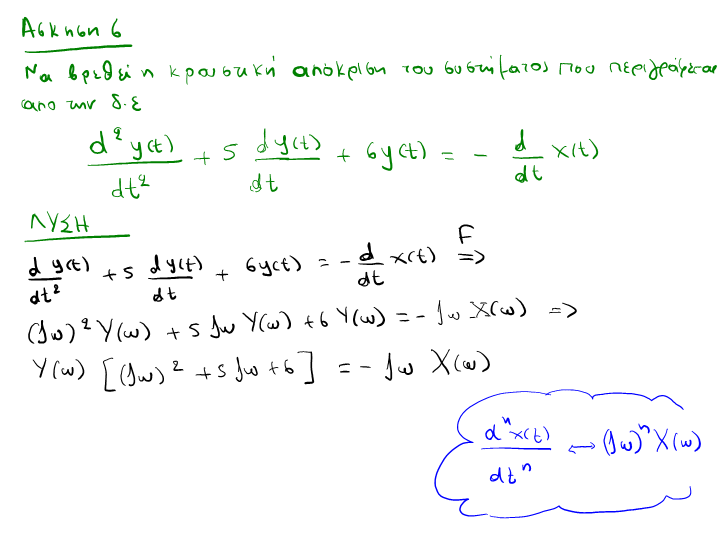 Άσκηση 6
Να βρεθεί η κρουστική απόκριση του συστήματος που περιγράφεται
από την δ.ε
d²y(t)/dt² + 5 dy(t)/dt + 6y(t) = - d/dt x(t)
ΛΥΣΗ
d y(t)/dt² + 5 dy(t)/dt + 6y(t) = - d/dt x(t) F=>
(jω)² Y(ω) + 5 jω Y(ω) + 6 Y(ω) = - jω X(ω) =>
Y(ω) [(jω)² + 5 jω + 6] = - jω X(ω)
dⁿx(t)/dtⁿ ↔ (jω)ⁿ X(ω)